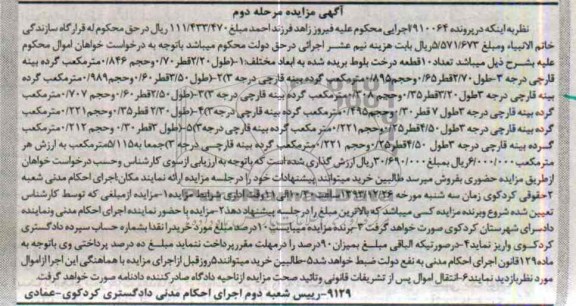 آگهی مزایده مرحله دوم
نظر به اینکه در پرونده ۹۱۰۰۶۴/اجرایی محکوم علیه فیروز زاهد فرزند احمد مبلغ ۱۱۱/۴۳۳/۴۷۰ ریال در حق محکوم له قرارگاه سازندگی
خاتم الانبیاء ومبلغ ۵/۵۷۱/۶۷۳ریال بابت هزینه نیم عشر اجرائی درحق دولت محکوم میباشد باتوجه به درخواست خواهان اموال محکوم
علیه بشرح ذیل میباشد تعداد ۱۰قطعه درخت بلوط بریده شده به ابعاد مختلف:۱-(طول ۲/۲۰قطر۰/۷۰ وحجم ۰/۸۴۶ مترمکعب گرده بینه
قارچی درجه ۳-طول ۲/۷۰قطر۰/۶۵ وحجم۰/۸۹۵مترمکعب گرده بینه قارچی درجه ۳)۲-(طول ۳/۵۰قطر۰/۶۰ وحجم۰/۹۸۹مترمکعب گرده
بینه قارچی درجه ۳طول ۳/۲۰قطر۰/۳۵ وحجم۰/۳۰۷مترمکعب گرده بینه قارچی درجه ۳)۳-(طول ۲/۵۰قطر۰/۶۰ وحجم ۰/۷۰۷ مترمکعب
گرده بینه قارچی درجه ۳طول ۷ قطر۰/۳۰ وحجم۰/۴۹۵مترمکعب گرده بینه قارچی درجه ۳)۴-(طول ۲/۳۰ قطر۰/۳۵وحجم۰/۲۲۱مترمکعب
گرده بینه قارچی درجه ۳طول ۴/۵۰قطر۰/۲۵ وحجم۰/۲۲۱مترمکعب گرده بینه قارچی درجه ۳)۵-(طول ۳قطر۰/۳۰ وحجم ۰/۲۱۲ مترمکعب
گرده بینه قارچی درجه ۳طول ۴/۵۰قطر۰/۲۵ وحجم۰/۲۲۱مترمکعب گرده بینه قارچی درجه ۳)جمعا به۵/۱۱۵مترمکعب به ارزش هر
مترمکعب ۶/۰۰۰/۰۰۰ریال بمبلغ ۳۰/۶۹۰/۰۰۰ ریال ارزش گذاری شده است که باتوجه به ارزیابی از سوی کارشناس وحسب درخواست خواهان
ازطریق مزایده حضوری بفروش میرسد طالبین خرید میتوانند پیشنهادات خود را در جلسه مزایده ارائه نمایند مکان:اجرای احکام مدنی شعبه
۲حقوقی کردکوی زمان سه شنبه مورخه ۱۳۹۲/۱۲/۲۶ ساعت الی ۱۱وقت اداری شرایط مزایده:۱-مزایده ازمبلغی که توسط کارشناس
تعیین شده شروع وبرنده مزایده کسی میباشد که بالاترین مبلغ را در جلسه پیشنهاد دهد۲-مزایده با حضور نماینده اجرای احکام مدنی ونماینده
دادسرای شهرستان کردکوی صورت خواهد گرفت۳-برنده مزایده میبایست۱۰درصد مبلغ مورد خریدرا نقدا بشماره حساب سپرده دادگستری
کردکوی واریز نماید۴-درصورتیکه الباقی مبلغ بمیزان۹۰درصد را درمهلت مقررپرداخت ننماید مبلغ ده درصد پرداختی وی باتوجه به
ماده۱۲۹قانون اجرای احکام مدنی به نفع دولت ضبط خواهد شد۵-طالبین خرید میتوانند۵روزقبل ازاجرای مزایده با هماهنگی این اجرا ازاموال
مورد نظربازدید نمایند۶-انتقال اموال پس از تشریفات قانونی وتائید صحت مزایده ازناحیه دادگاه صادر کننده دادنامه صورت خواهد گرفت.
۹۱۲۹-رییس شعبه دوم اجرای احکام مدنی دادگستری کردکوی-عمادی